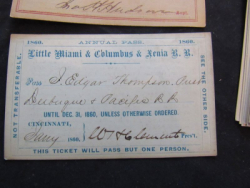 1860. ANNUAL PASS. 1860.
Little Miami & Columbus & Xenia R. R.
Pass J. Edgar Thompson, Prest
Dubuque & Pacific R.R.
UNTIL DEC. 31, 1860, UNLESS OTHERWISE ORDERED.
CINCINNATI,
1860. W. H. Clement PREST.
THIS TICKET WILL PASS BUT ONE PERSON.
NOT TRANSFERABLE.
SEE THE OTHER SIDE.